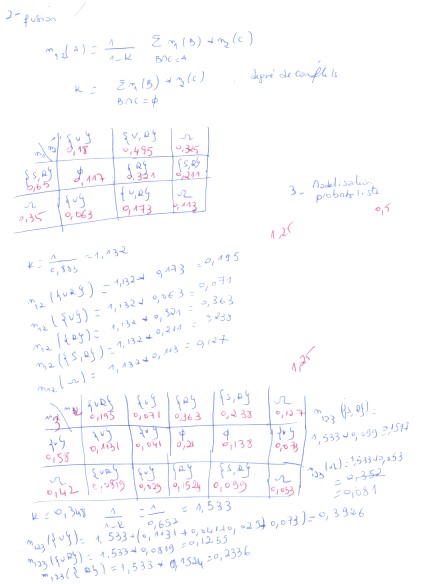 2- fusion
m12(A) = 1/(1-K) Σ m1(B) * m2(C)
B∩C=A
K = Σ m1(B) * m2(C)
B∩C=ϕ
degré de conflits
{V} {V,R} Ω
0,18 0,495 0,325
{S,R} ϕ {R} {S,R}
0,65 0,117 0,321 0,211
Ω {V} {V,R} Ω
0,35 0,063 0,173 0,113
3- Modélisation
probabiliste
0,5
1,25
K = 1/0,883 = 1,132
m12({V,R}) = 1,132 * 0,173 = 0,195
m12({V}) = 1,132 * 0,063 = 0,071
m12({R}) = 1,132 * 0,321 = 0,363
m12({S,R}) = 1,132 * 0,211 = 0,239
m12(Ω) = 1,132 * 0,113 = 0,127
1,25
{V,R} {V} {R} {S,R} Ω
0,195 0,071 0,363 0,238 0,127
{V} {V} {V} ϕ ϕ {V}
0,58 0,1131 0,041 0,21 0,138 0,073
Ω {V,R} {V} {R} {S,R} Ω
0,42 0,0819 0,029 0,1524 0,099 0,053
m123({S,R}) =
1,533 * 0,099 = 0,1517
m123(Ω) = 1,533 * 0,053
= 0,081
K = 0,348 1/(1-K) = 1/0,652 = 1,533
m123({V}) = 1,533 * (0,1131 + 0,041 + 0,029 + 0,073) = 0,3926
m123({V,R}) = 1,533 * 0,0819 = 0,1255
m123({R}) = 1,533 * 0,1524 = 0,2336